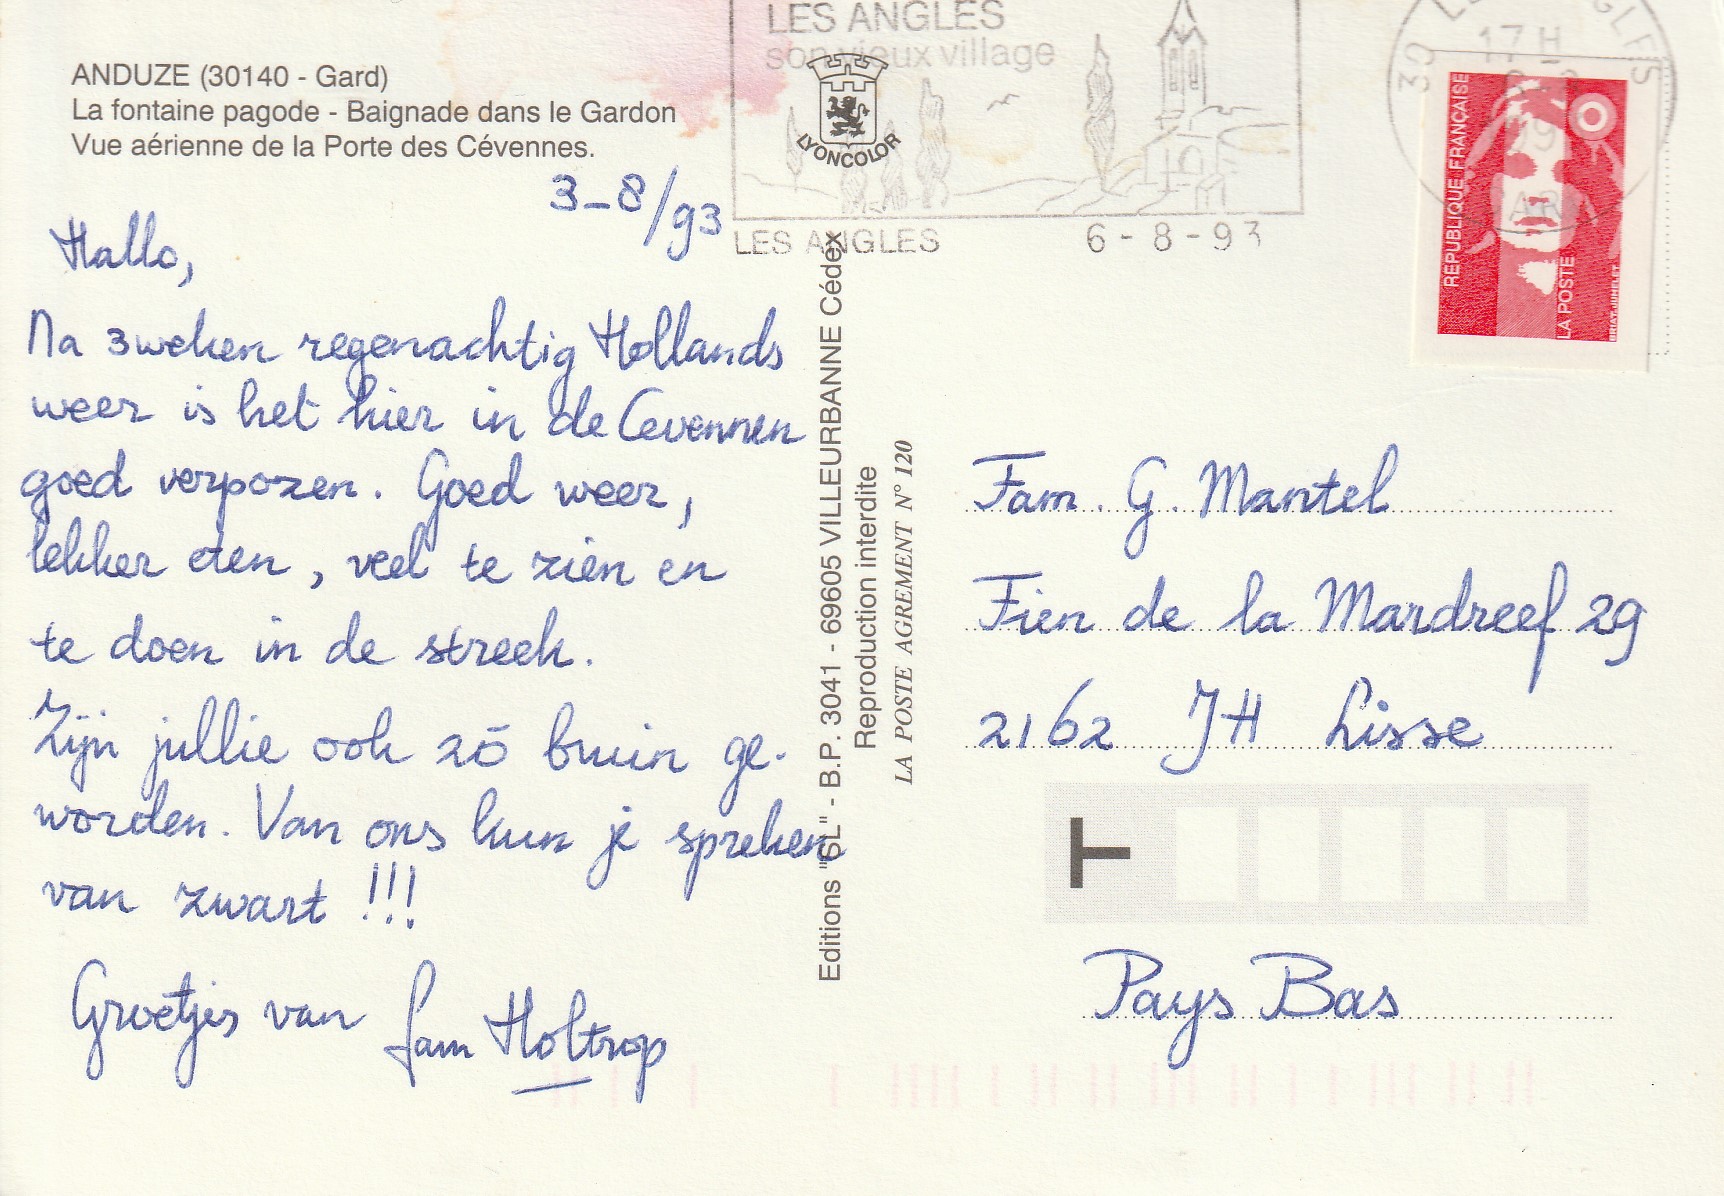 ANDUZE (30140 - Gard)
La fontaine pagode - Baignade dans le Gardon
Vue aérienne de la Porte des Cévennes.
3-8/93
Hallo,
Na 3 weken regenachtig Hollands
weer is het hier in de Cevennen
goed verpozen. Goed weer,
lekker eten, veel te zien en
te doen in de streek.
Zijn jullie ook zó bruin ge-
worden. Van ons kun je spreken
van zwart !!!
Groetjes van fam Holtrop
LES ANGLES
son vieux village
LYONCOLOR
LES ANGLES 6-8-93
Editions "SL" - B.P. 3041 - 69605 VILLEURBANNE Cédex
Reproduction interdite
LA POSTE AGREMENT N° 120
17 H
REPUBLIQUE FRANÇAISE
LA POSTE
Fam. G. Mantel
Fien de la Mardreef 29
2162 JH Lisse
T
Pays Bas